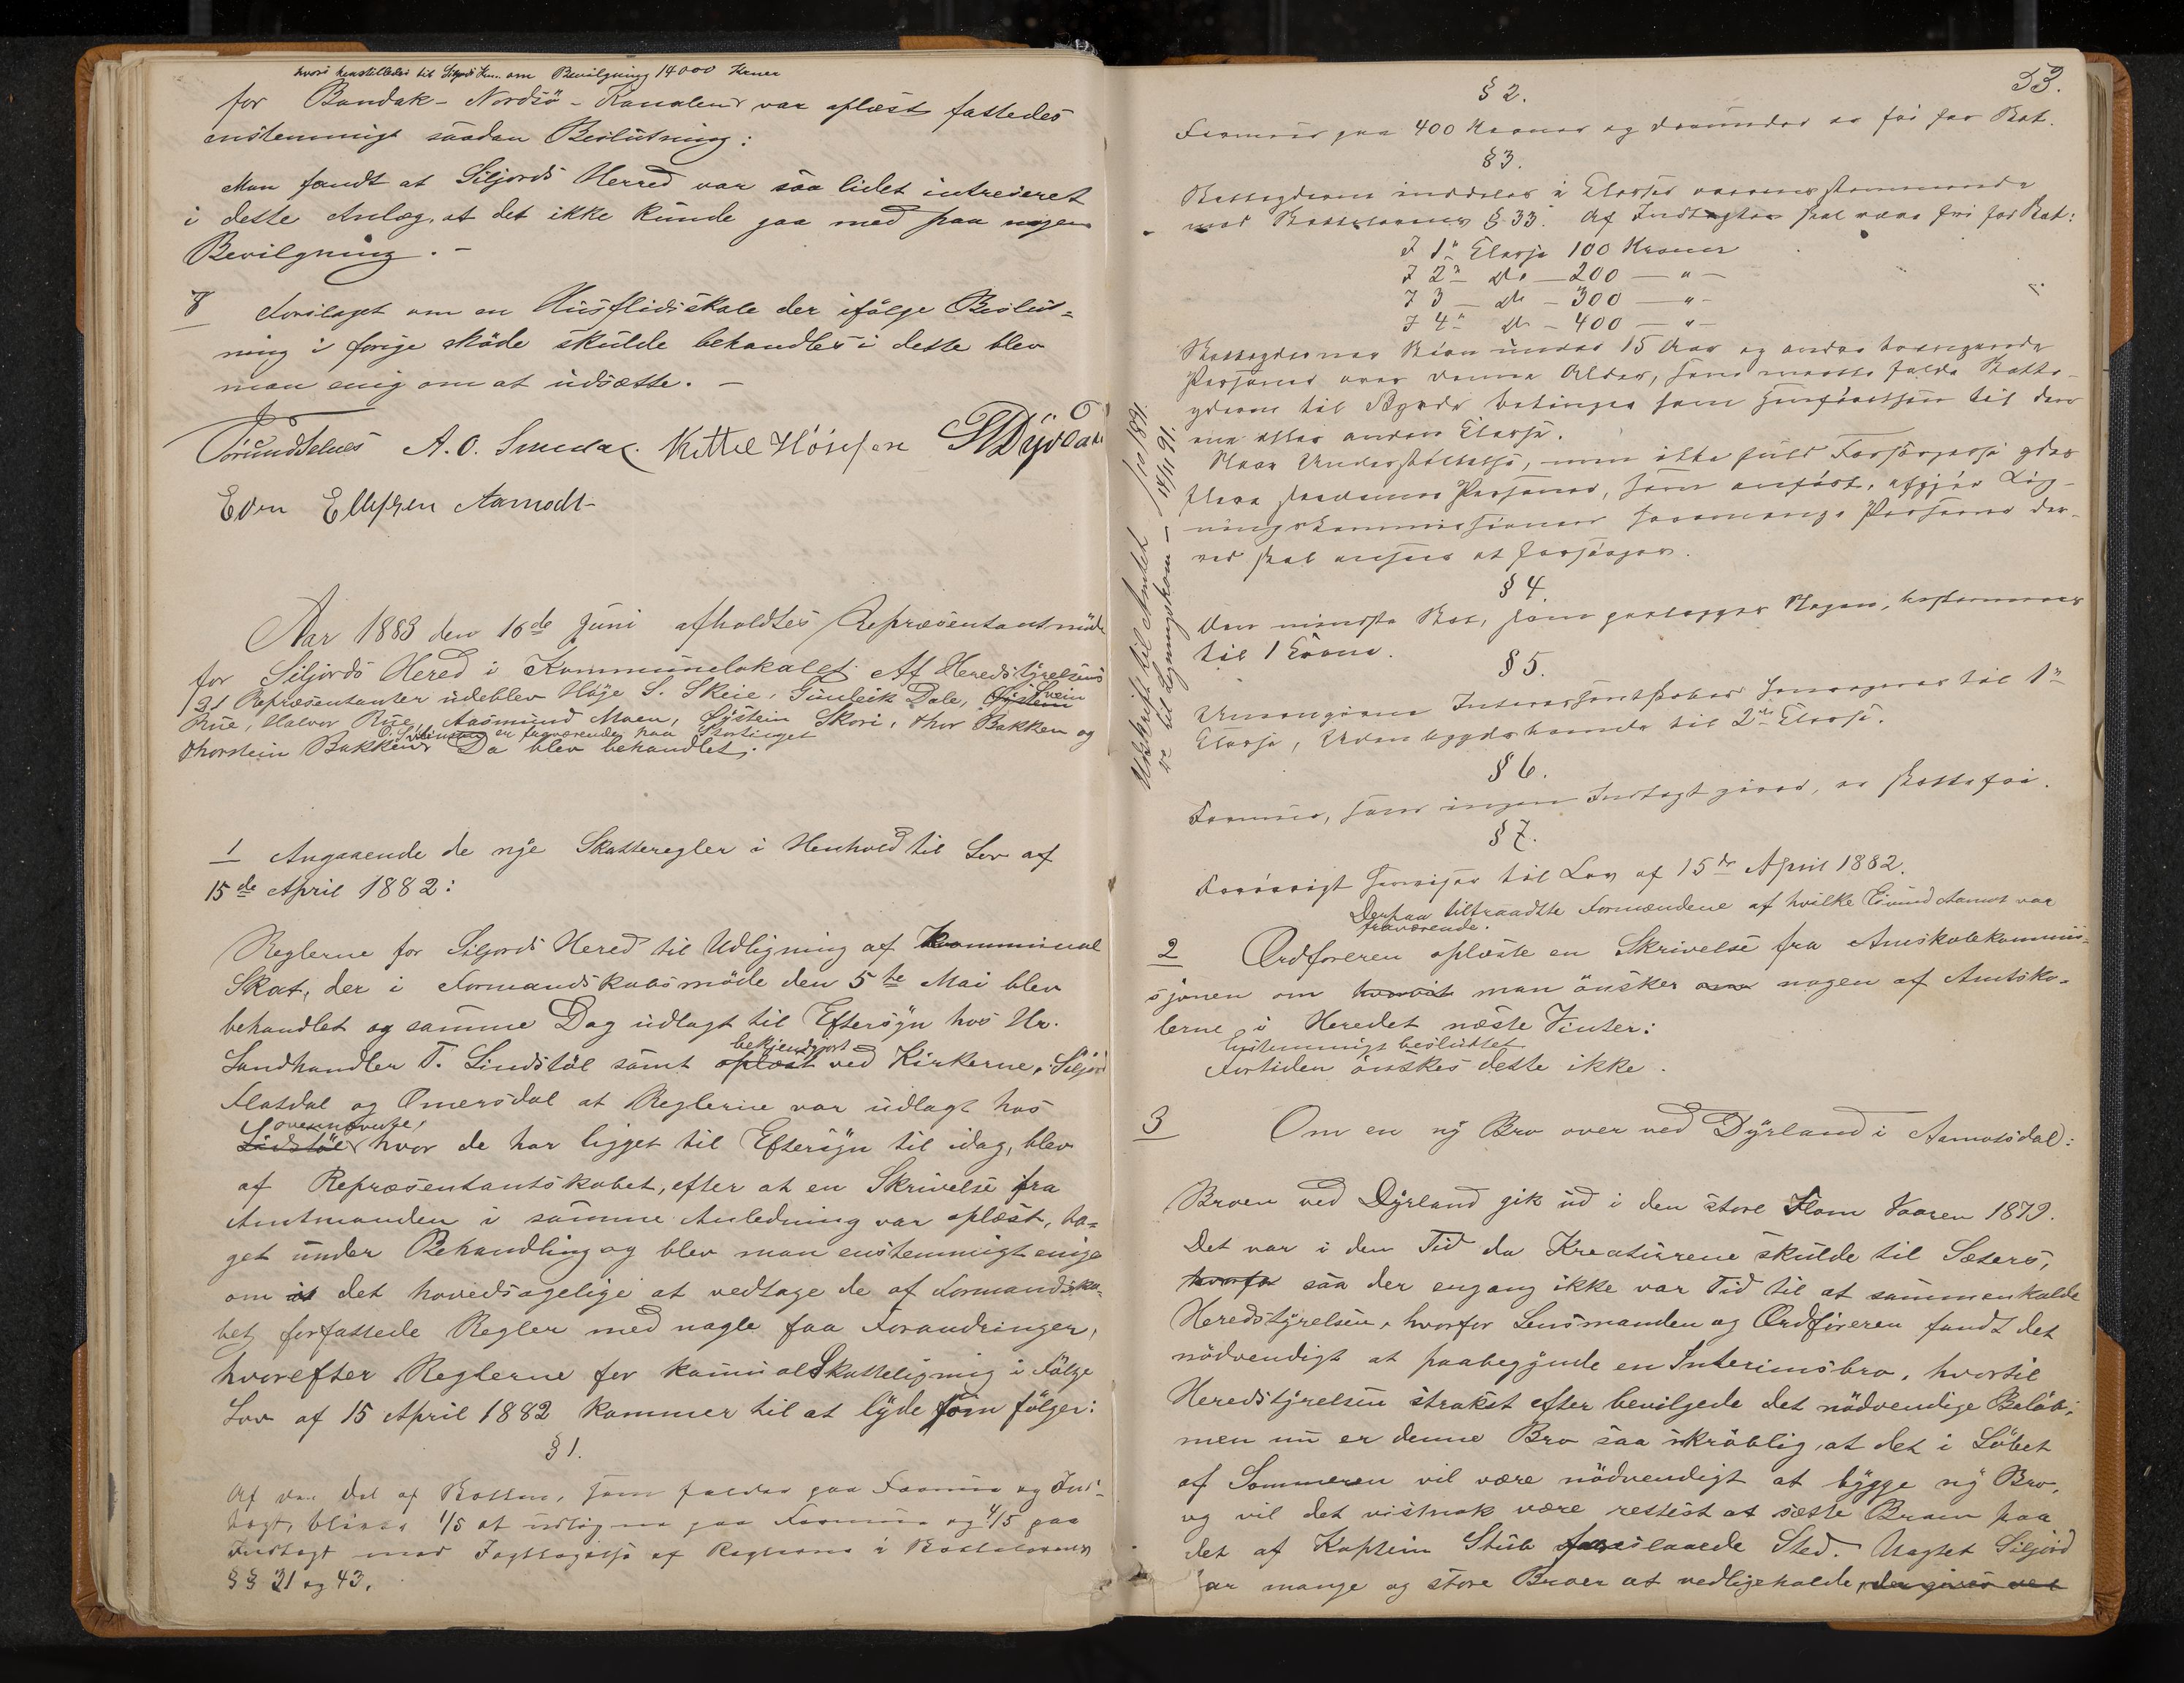 hvori henstilledes til Siljords Kom. om Bevilgning 14000 Kroner
for Bandak-Nordsö-Kanalen var oplæst fattedes
enstemmigt saadan Beslutning:
Man fandt at Siljords Herred var saa lidet intreseret
i dette Anlæg, at det ikke kunde gaa med paa nogen
Bevilgning. -
8 Forslaget om en Husflidsskole der ifölge Beslut-
ning i forige Möde skulde behandles i dette blev
man enig om at udsætte. -
A.O. Smedal. Kittel Höisesen
Even Ellefsen Aamodt
Aar 1883 den 16de Juni afholdtes Repræsentantmöde
for Siljords Hered i Kommunelokalet. Af Heredstyrelsens
21 Repræsentanter udeblev Höje S. Skeie, Gunleik Dale, Öistein Svein
Rue, Halvor Rue, Aasmund Moen, Öystein Skori, Thor Bakken og
er fraværende paa Stortinget
Thorstein Bakken. Da blev behandlet:
1 Angaaende de nye Skatteregler i Henhold til Lov af
15de April 1882:
Reglerne for Siljords Hered til Udligning af Kommunal
Skat, der i Formandskabsmöde den 5te Mai blev
behandlet og samme Dag udlagt til Eftersyn hos Hr.
bekjendtgjort
Landhandler T. Lindstöl samt oplæst ved Kirkerne, Siljord
Flatdal og Omersdal at Reglerne var udlagt hos
ovennævnte,
Lidstöl hvor de har ligget til Eftersyn til idag, blev
af Repræsentantskabet, efter at en Skrivelse fra
Amtmanden i samme Anledning var oplæst, ta-
get under Behandling og blev man enstemmigt enige
om at det hovedsagelige at vedtage de af Formandska-
bet forfattede Regler med nogle faa Forandringer,
hvorefter Reglerne for kamunalSkatteligning i Fölge
Lov af 15 April 1882 kommer til at lyde som fölger:
§ 1.
Af den Del af Skatten, som falder paa Formue og Ind-
tægt, bliver 1/5 at udligne paa Formue og 4/5 paa
Indtægt med Iagttagelse af Reglerne i Skattelovens
§§ 21 og 43.
53.
§ 2.
Formue paa 400 Kroner og derunder er fri for Skat.
§ 3.
Skatteyderne inddeles i Classer overensstemmende
med Skattelovens § 33. Af Indtægten skal være fri for Skat:
I 1ste Classe 100 Kroner
I 2den Do - 200 - " -
I 3 - Do - 300 - " -
I 4de Do - 400 - " -
Skatteydernes Börn under 15 Aar og andre trængende
Personer over denne Alder, som maatte falde Skatte-
yderne til Byrde betinger som Henförelsen til den
ene eller anden Classe.
Naar Understöttelse, men ikke fuld Forsörgelse ydes
flere saadanne Personer, som anfört, afgjör Lig-
ningskommissionen hvormange Personer der-
ved skal ansees at forsörges.
§ 4.
Den mindste Skat, som paalægges Nogen, bestemmes
til 1 Krone.
§ 5.
Umyndige Interessentskaber henregnes til 1ste
Classe, Udenbygdsboende til 2den Classe.
§ 6.
Formue, som ingen Indtægt giver, er skattefri.
§ 7.
Forövrigt henvises til Lov af 15de April 1882.
Derpaa tiltraadte Formændene af hvilke Eivind Aamot var
fraværende.
2 Ordföreren oplæste en Skrivelse fra Amskolekommis-
sjonen om hvorvit man önsker om nogen af Amtsko-
lerne i Heredet næste Vinter:
Enstemmigt besluttet
Fortiden önskes dette ikke.
3 Om en ny Bro over ved Dyrland i Aamotsdal:
Broen ved Dyrland gik ud i den store Flom Vaaren 1879.
Det var i den Tid da Kreaturene skulde til Sæters,
hvorfor saa der engang ikke var Tid til at sammenkalde
Heredstyrelsen, hvorfor Lensmanden og Ordföreren fandt det
nödvendigt at paabegynde en Interimsbro, hvortil
Heredstyrelsen strakst efter bevilgede det nödvendige Belöb;
men nu er denne Bro saa skröblig, at det i Löbet
af Sommeren vil være nödvendigt at bygge ny Bro,
og vil det vistnok være rettest at sætte Broen paa
det af Kaptein Stub foreslaaede Sted. Uagtet Siljord
har mange og store Broer at vedligeholde, der gives ved
Udskrift til Amtet
do til Ligningskom - 14/11 91.